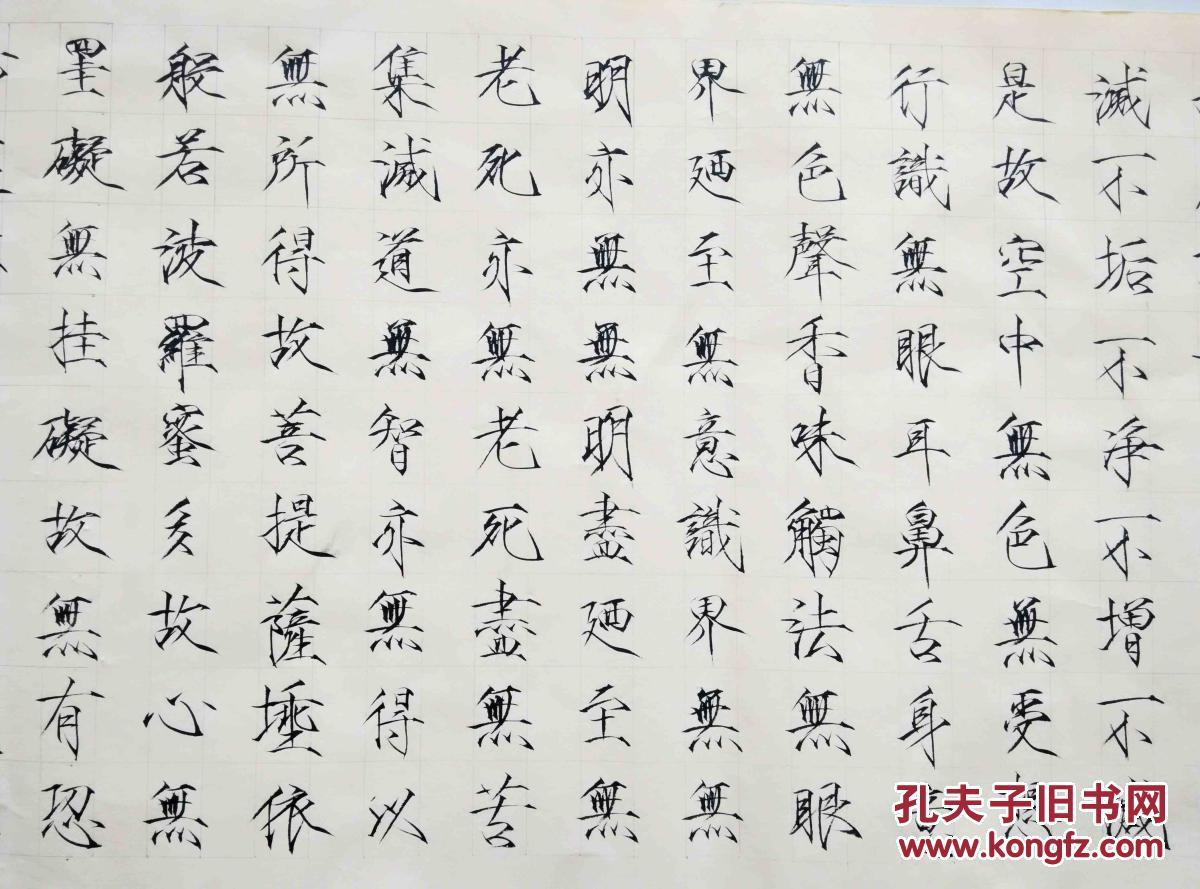 滅不垢不净不增不減
是故空中無色無受想
行識無眼耳鼻舌身意
無色聲香味觸法無眼
界廼至無意識界無無
明亦無無明盡廼至無
老死亦無老死盡無苦
集滅道無智亦無得以
無所得故菩提薩埵依
般若波羅蜜多故心無
罣礙無挂礙故無有恐
孔夫子旧书网
www.kongfz.com